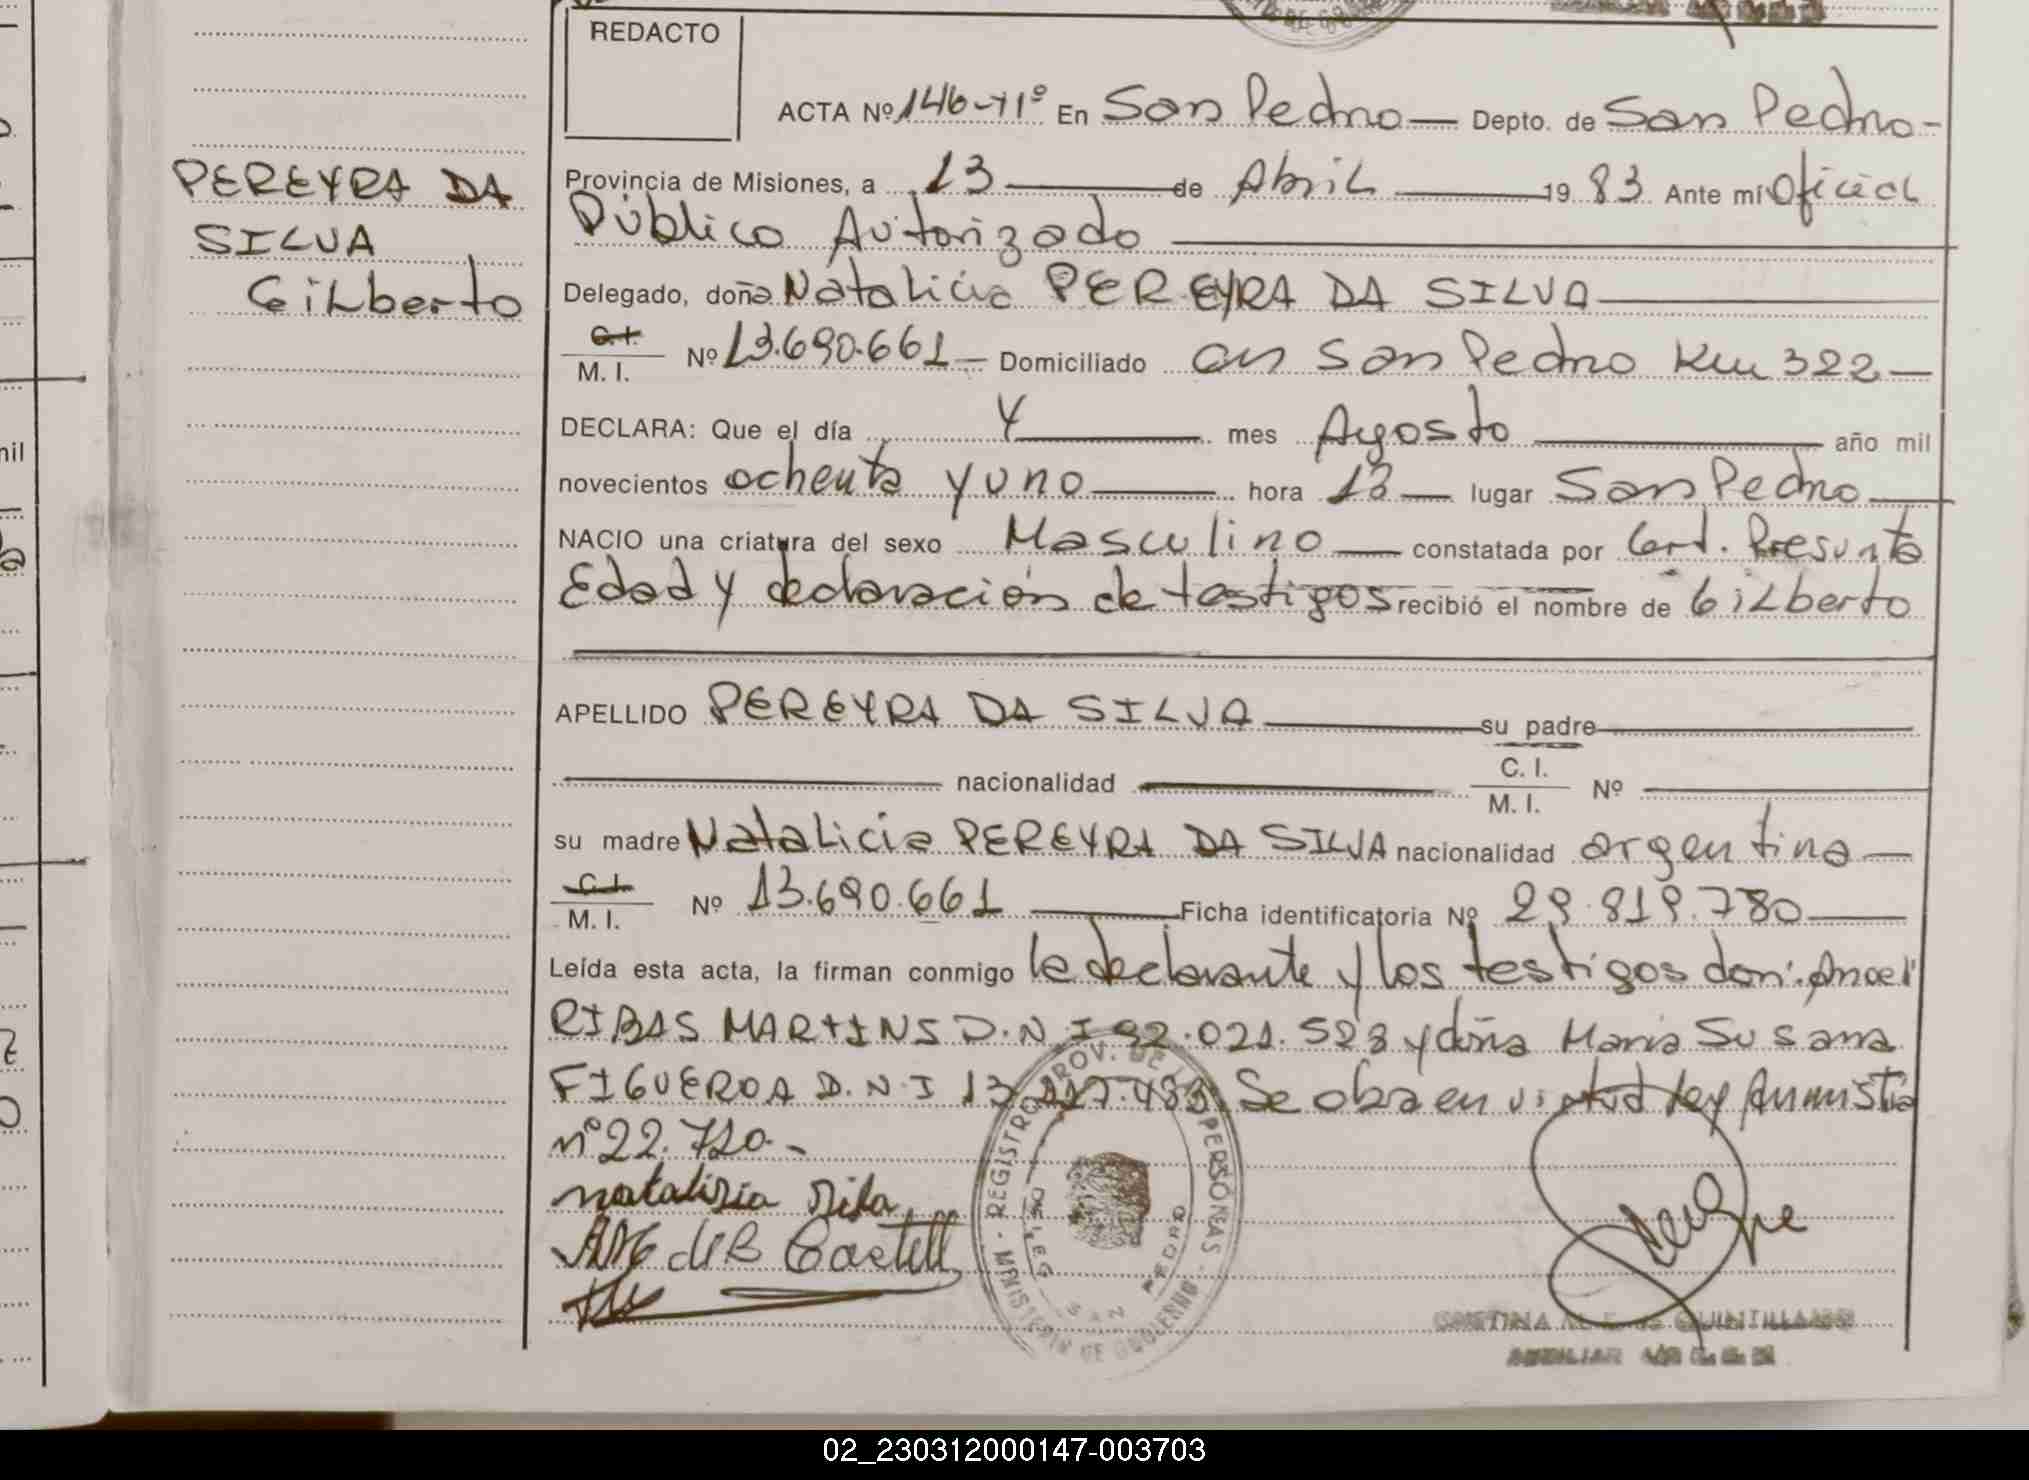 REDACTO
ACTA Nº 146-Tlº En San Pedro Depto. de San Pedro
PEREYRA DA
SILVA
Gilberto
Provincia de Misiones, a 13 de Abril 1983 Ante mí Oficial
Público Autorizado
Delegado, doña Natalicia PEREYRA DA SILVA
C.I.
M. I. Nº 13.690.661 Domiciliado en San Pedro Km 322
DECLARA: Que el día 4 mes Agosto año mil
novecientos ochenta y uno hora 13 lugar San Pedro
NACIO una criatura del sexo Masculino constatada por Cert. Presunta
Edad y declaración de testigos recibió el nombre de Gilberto
APELLIDO PEREYRA DA SILVA su padre
nacionalidad C. I.
M. I. Nº
su madre Natalicia PEREYRA DA SILVA nacionalidad argentina
C.I.
M. I. Nº 13.690.661 Ficha identificatoria Nº 29.819.780
Leída esta acta, la firman conmigo la declarante y los testigos don: Angel
RIBAS MARTINS D.N.I 92.021.523 y doña Maria Susana
FIGUEROA D.N.I 13. Se obra en virtud ley Amnistia
nº 22.720.-
natalisia silva
REGISTRO PROV. DE LAS PERSONAS
MINISTERIO DE GOBIERNO
DELEG. SAN PEDRO
CRISTINA QUINTILLANO
AUXILIAR
nil
02_230312000147-003703